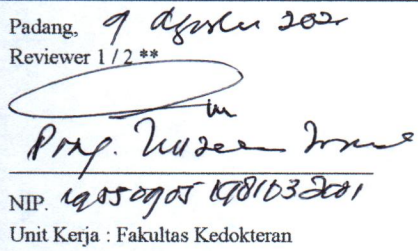 Padang, 9 Agustus 202
Reviewer 1 / 2 **
Prof.
NIP. 195509051981032001
Unit Kerja : Fakultas Kedokteran